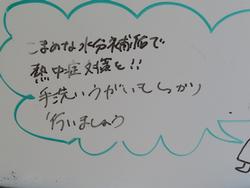 こまめな水分補給で
熱中症対策を!!
手洗いうがいもしっかり
行いましょう